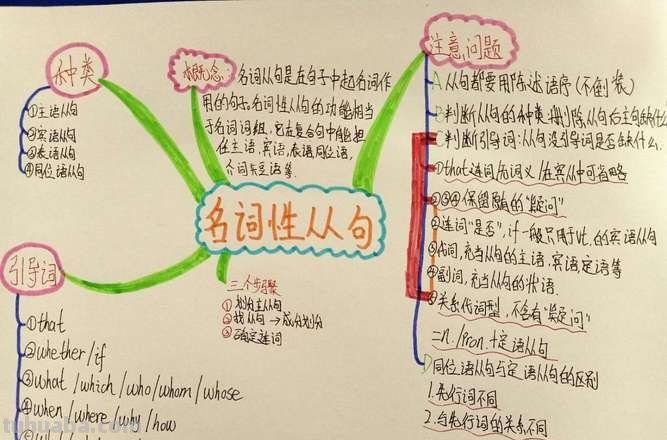 种类
①主语从句
②宾语从句
③表语从句
④同位语从句
概念:
名词从句是在句子中起名词作
用的句子.名词性从句的功能相当
于名词词组,它在复合句中能担
任主语,宾语,表语同位语,
介词宾语等.
名词性从句
三个步骤
①划分主从句
②找从句→成分划分
③确定连词
引导词
①that
②whether/if
③what/which/who/whom/whose
④when/where/why/how
注意问题
A从句都要用陈述语序(不倒装)
B判断从句的种类:删除从句后主句缺什么
C判断引导词:从句没引导词是否缺什么.
①that连词无词义/在宾从中可省略
②③④保留原有的"疑问"
②连词"是否",if一般只用于vt.的宾语从句
③代词,充当从句的主语,宾语定语等
④副词,充当从句的状语.
⑤关系代词型,不含有"疑问"
=n./pron.+定语从句
D同位语从句与定语从句的区别
1.先行词不同
2.与先行词的关系不同
tuhuaba.com